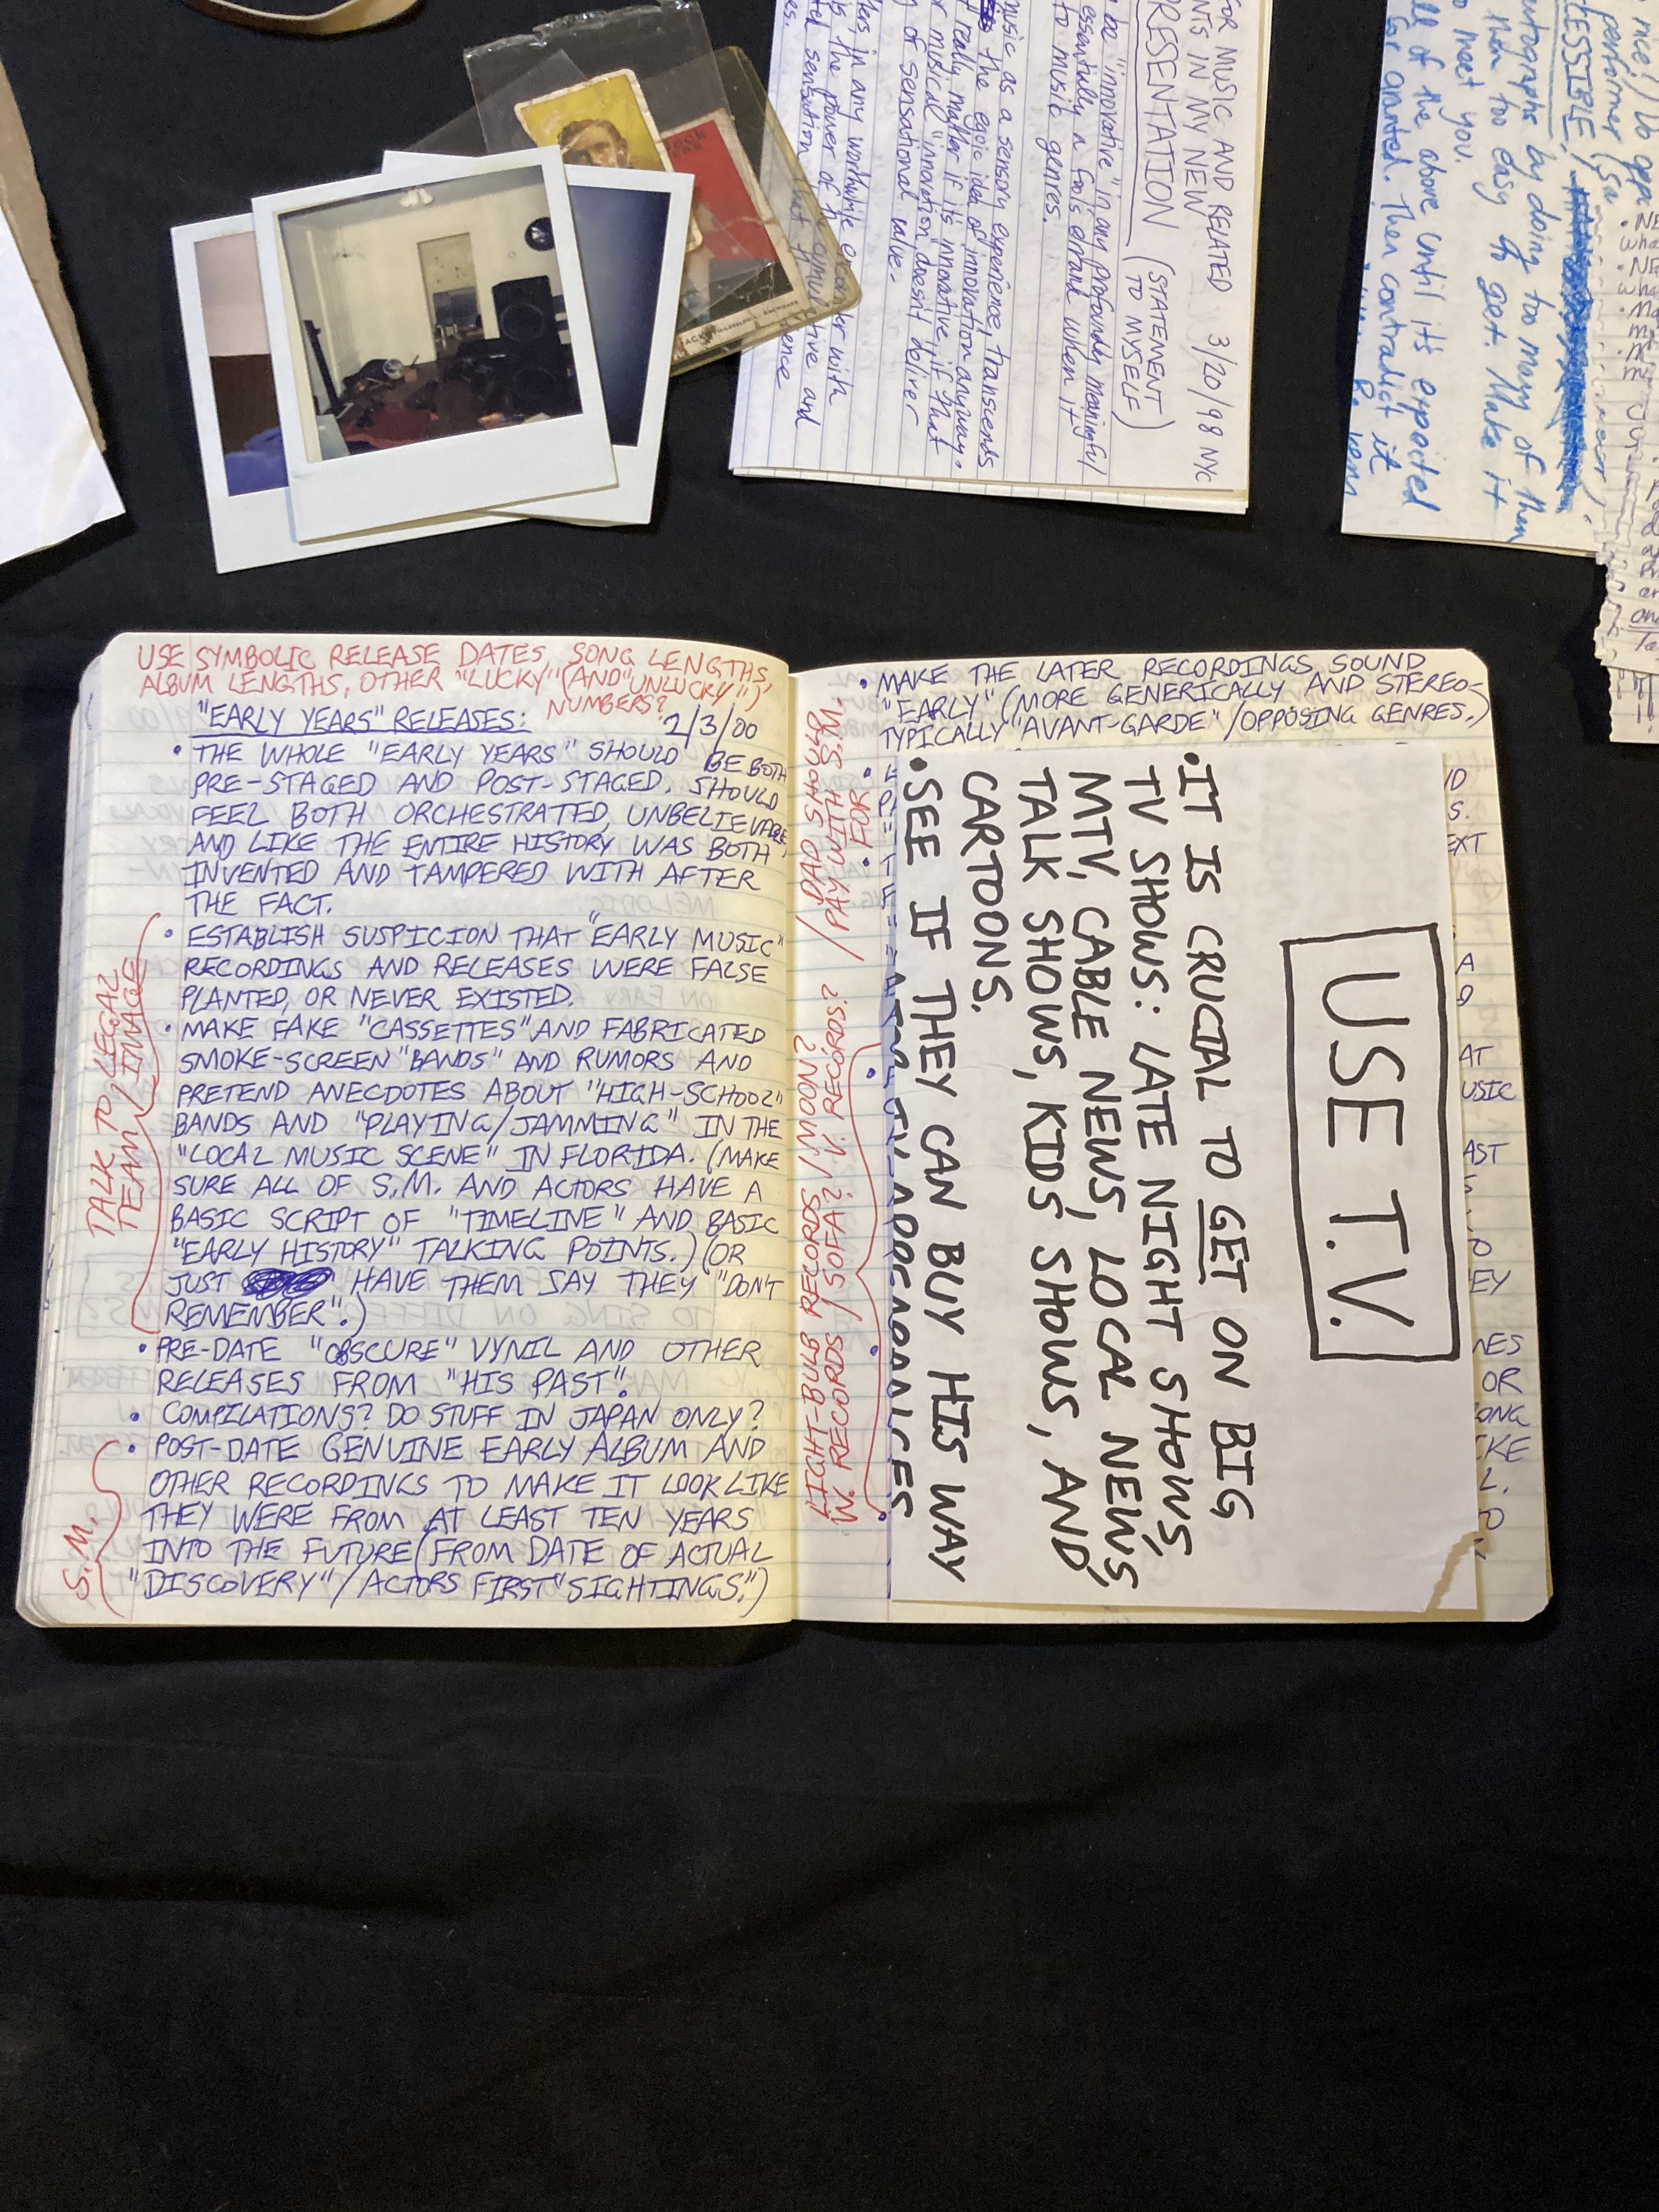 FOR MUSIC AND RELATED 3/20/98 NYC
NTS IN MY NEW
PRESENTATION (STATEMENT
TO MYSELF)
be "innovative" in any profoundly meaningful
essentially a fool's errand when it
to music genres.
music as a sensory experience, transcends
the egoic idea of innovation anyway.
really matter if it's innovative, if that
or musical "innovation" doesn't deliver
of sensational value.
in any worthwhile
the power of
sensation
nice!)
performer
CESSIBLE!
autographs by doing too many of them
them too easy to get. Make it
to meet you.
all of the above until it's expected
for granted. Then contradict it
USE SYMBOLIC RELEASE DATES, SONG LENGTHS,
ALBUM LENGTHS, OTHER "LUCKY" (AND "UNLUCKY")
NUMBERS?
"EARLY YEARS" RELEASES: 2/3/00
• THE WHOLE "EARLY YEARS" SHOULD BE BOTH
PRE-STAGED AND POST-STAGED. SHOULD
FEEL BOTH ORCHESTRATED, UNBELIEVABLE,
AND LIKE THE ENTIRE HISTORY WAS BOTH
INVENTED AND TAMPERED WITH AFTER
THE FACT.
• ESTABLISH SUSPICION THAT "EARLY MUSIC"
RECORDINGS AND RELEASES WERE FALSE
PLANTED, OR NEVER EXISTED.
• MAKE FAKE "CASSETTES" AND FABRICATED
SMOKE-SCREEN "BANDS" AND RUMORS AND
PRETEND ANECDOTES ABOUT "HIGH-SCHOOL"
BANDS AND "PLAYING/JAMMING" IN THE
"LOCAL MUSIC SCENE" IN FLORIDA. (MAKE
SURE ALL OF S.M. AND ACTORS HAVE A
BASIC SCRIPT OF "TIMELINE" AND BASIC
"EARLY HISTORY" TALKING POINTS.) (OR
JUST HAVE THEM SAY THEY "DON'T
REMEMBER".)
• PRE-DATE "OBSCURE" VYNIL AND OTHER
RELEASES FROM "HIS PAST".
• COMPILATIONS? DO STUFF IN JAPAN ONLY?
• POST-DATE GENUINE EARLY ALBUM AND
OTHER RECORDINGS TO MAKE IT LOOK LIKE
THEY WERE FROM AT LEAST TEN YEARS
INTO THE FUTURE (FROM DATE OF ACTUAL
"DISCOVERY"/ACTORS FIRST "SIGHTINGS.")
TALK TO LEGAL
TEAM / IMAGE
S.M.
• MAKE THE LATER RECORDINGS SOUND
"EARLY" (MORE GENERICALLY AND STEREO-
TYPICALLY "AVANT-GARDE"/OPPOSING GENRES.)
LIGHT-BULB RECORDS
W. RECORDS / SOFA? / V. RECORDS?
/ PAY WITH S.M.
FOR
USE T.V.
• IT IS CRUCIAL TO GET ON BIG
TV SHOWS: LATE NIGHT SHOWS,
MTV, CABLE NEWS, LOCAL NEWS,
TALK SHOWS, KIDS SHOWS, AND
CARTOONS.
• SEE IF THEY CAN BUY HIS WAY